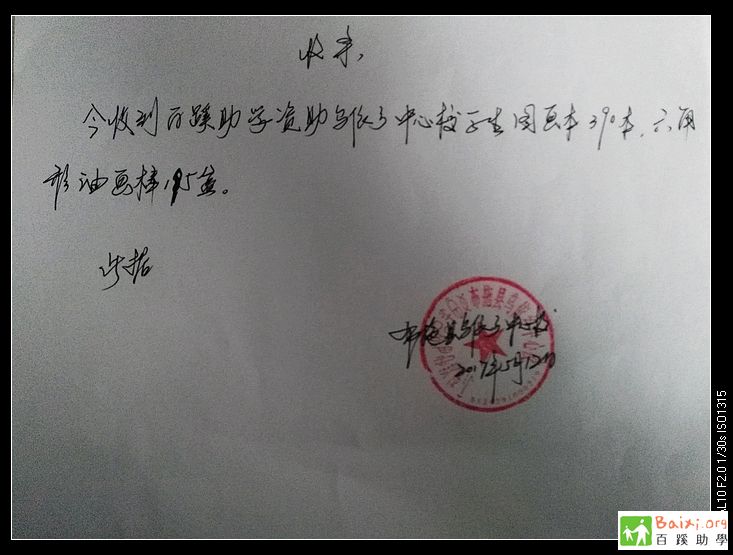 收条
今收到百蹊助学资助乌依乡中心校学生图画本390本,六角
形油画棒195盒。
此据
布拖县乌依乡中心校
2017年5月12日
AL10 F2.0 1/30s ISO1315
Baixi.org
百蹊助學